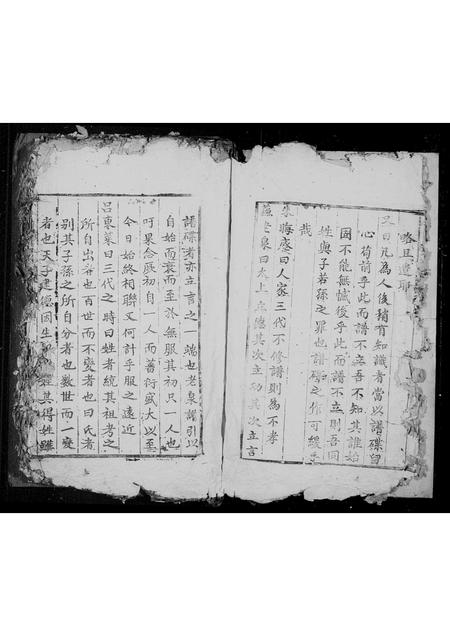 略且遺耶
又曰凡為人後稍有知識者當以譜牒留
心苟前乎此而譜不立吾不知其誰始
固不能無憾後乎此而譜不立則吾同
姓與子若孫之罪也譜牒之作可緩乎
哉
朱晦菴曰人家三代不修譜則為不孝
老泉曰太上立德其次立功其次立言
譜牒者亦立言之一端也老泉譜引以
自始而衰而至於無服其初只一人也
吁果念厥初自一人而蕃衍盛大以至
今日始終相聯又何計乎服之遠近
呂東萊曰三代之時曰姓者統其祖考之
所自出者也百世而不變者也曰氏者
別其子孫之所自分者也數世而一變
者也天子建德因生以賜姓其得姓雖